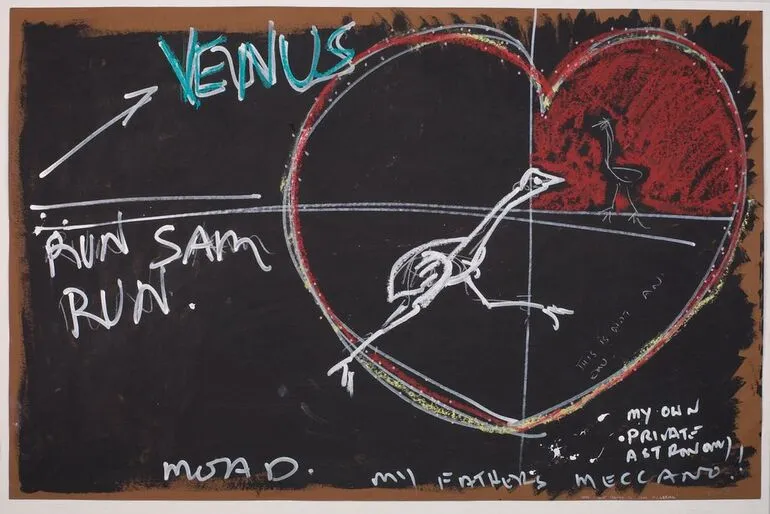 VENUS
RUN SAM
RUN.
THIS IS NOT AN
EMU
MY OWN
PRIVATE
ASTRONOMY,
MOAD. MY FATHER'S MECCANO.